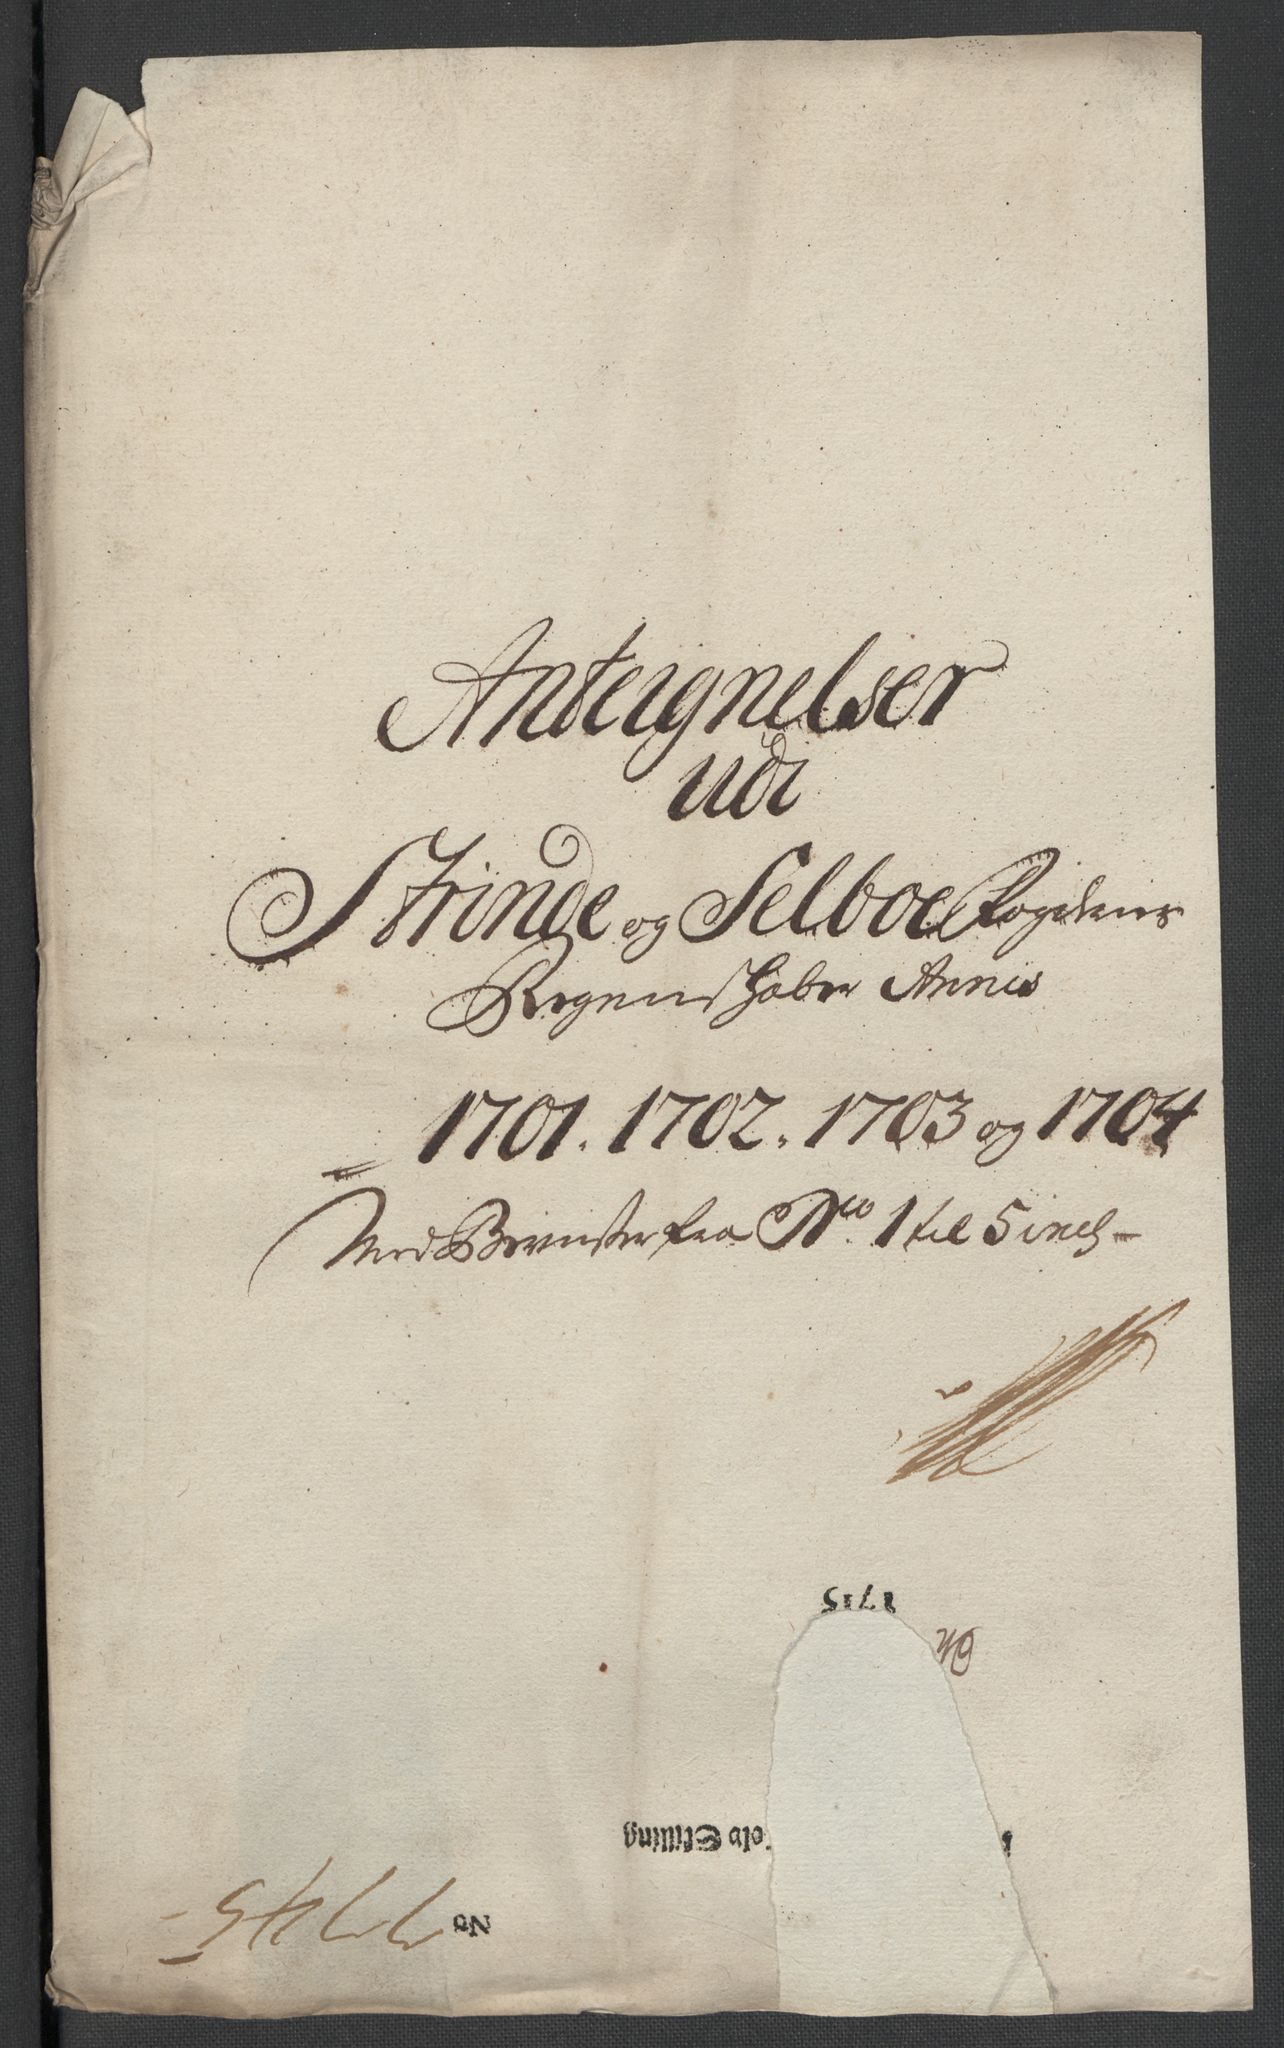 Anteignelser
udi
Strinde og Selboe Fogderis
Regenskaber Annis
1701. 1702. 1703 og 1704
Med Beviister fra No. 1 til 5 incl.
1715
Skilling
No 7745